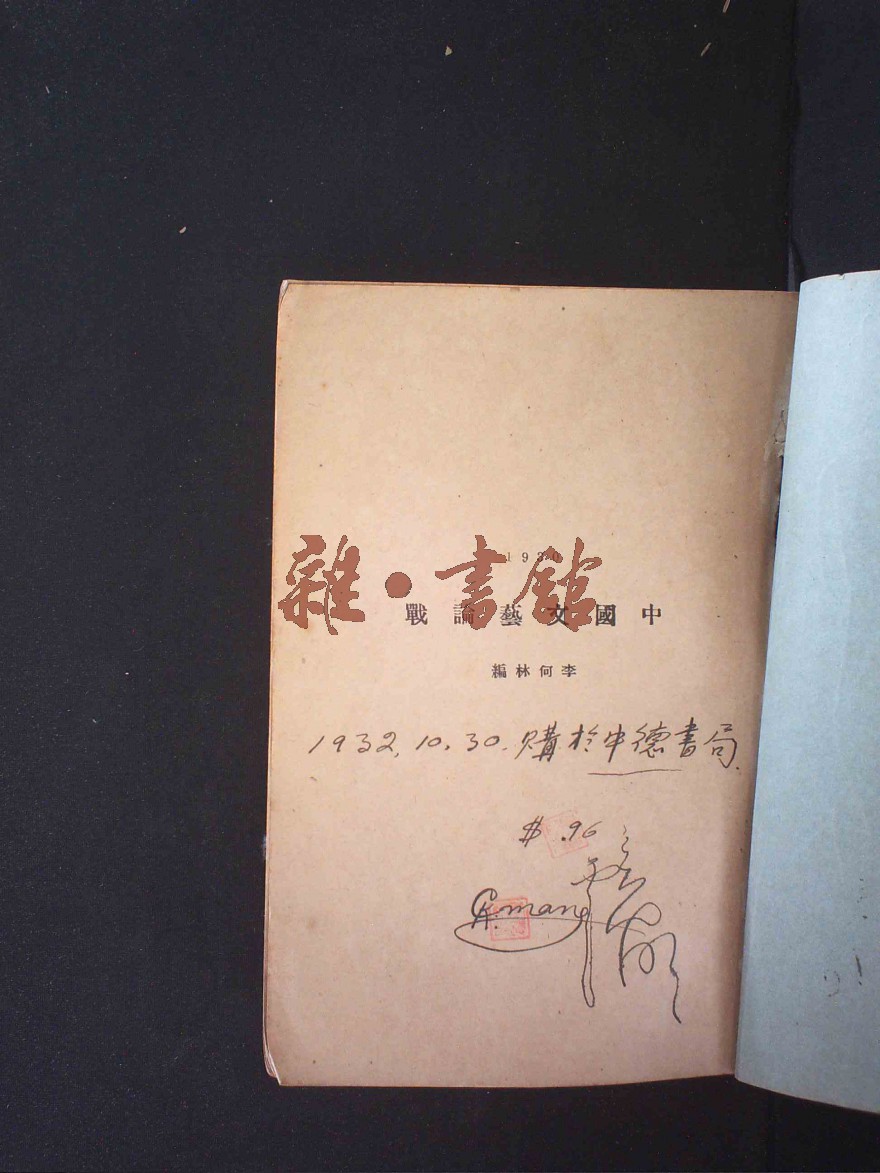 1930
中國文藝論戰
李何林編
雜·書館
1932.10.30.購於中德書局.
$ .96